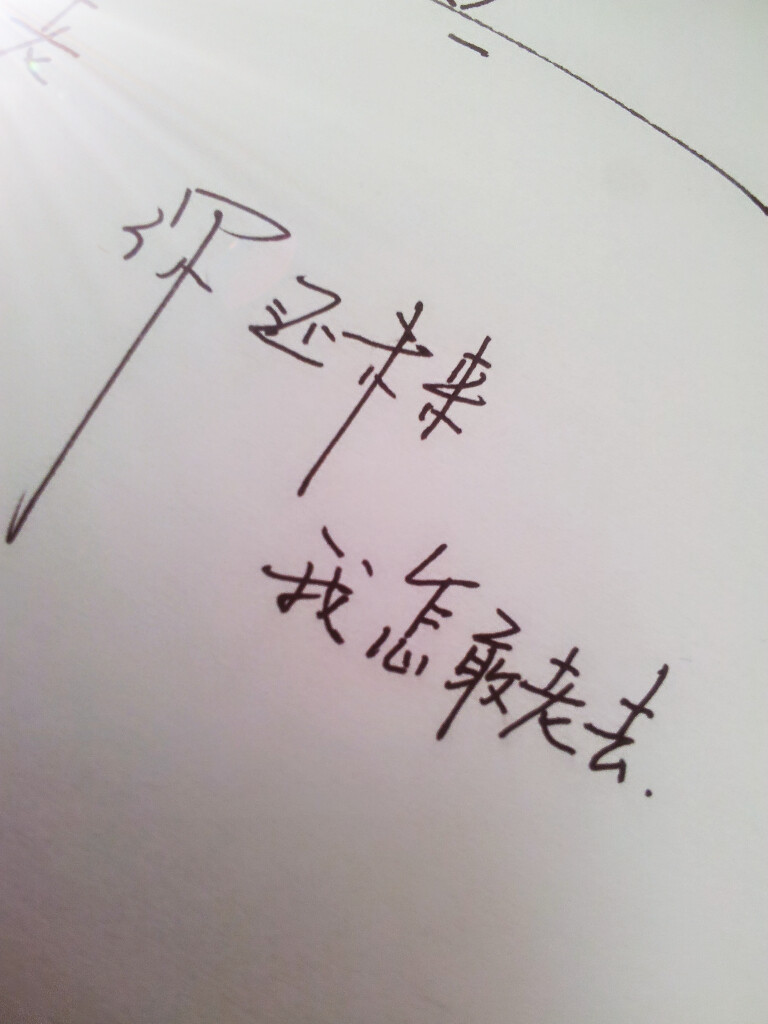 你还未来
我怎敢老去.